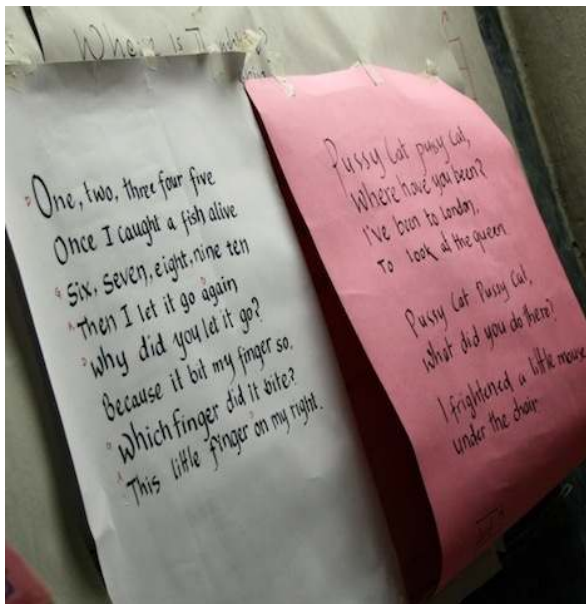 Where Is
One, two, three four five
Once I caught a fish alive
Six, seven, eight, nine ten
Then I let it go again
Why did you let it go?
Because it bit my finger so.
Which finger did it bite?
This little finger on my right.
Pussy Cat pussy cat,
Where have you been?
I've been to London,
To look at the queen
Pussy Cat Pussy Cat,
What did you do there?
I frightened a little mouse
under the chair